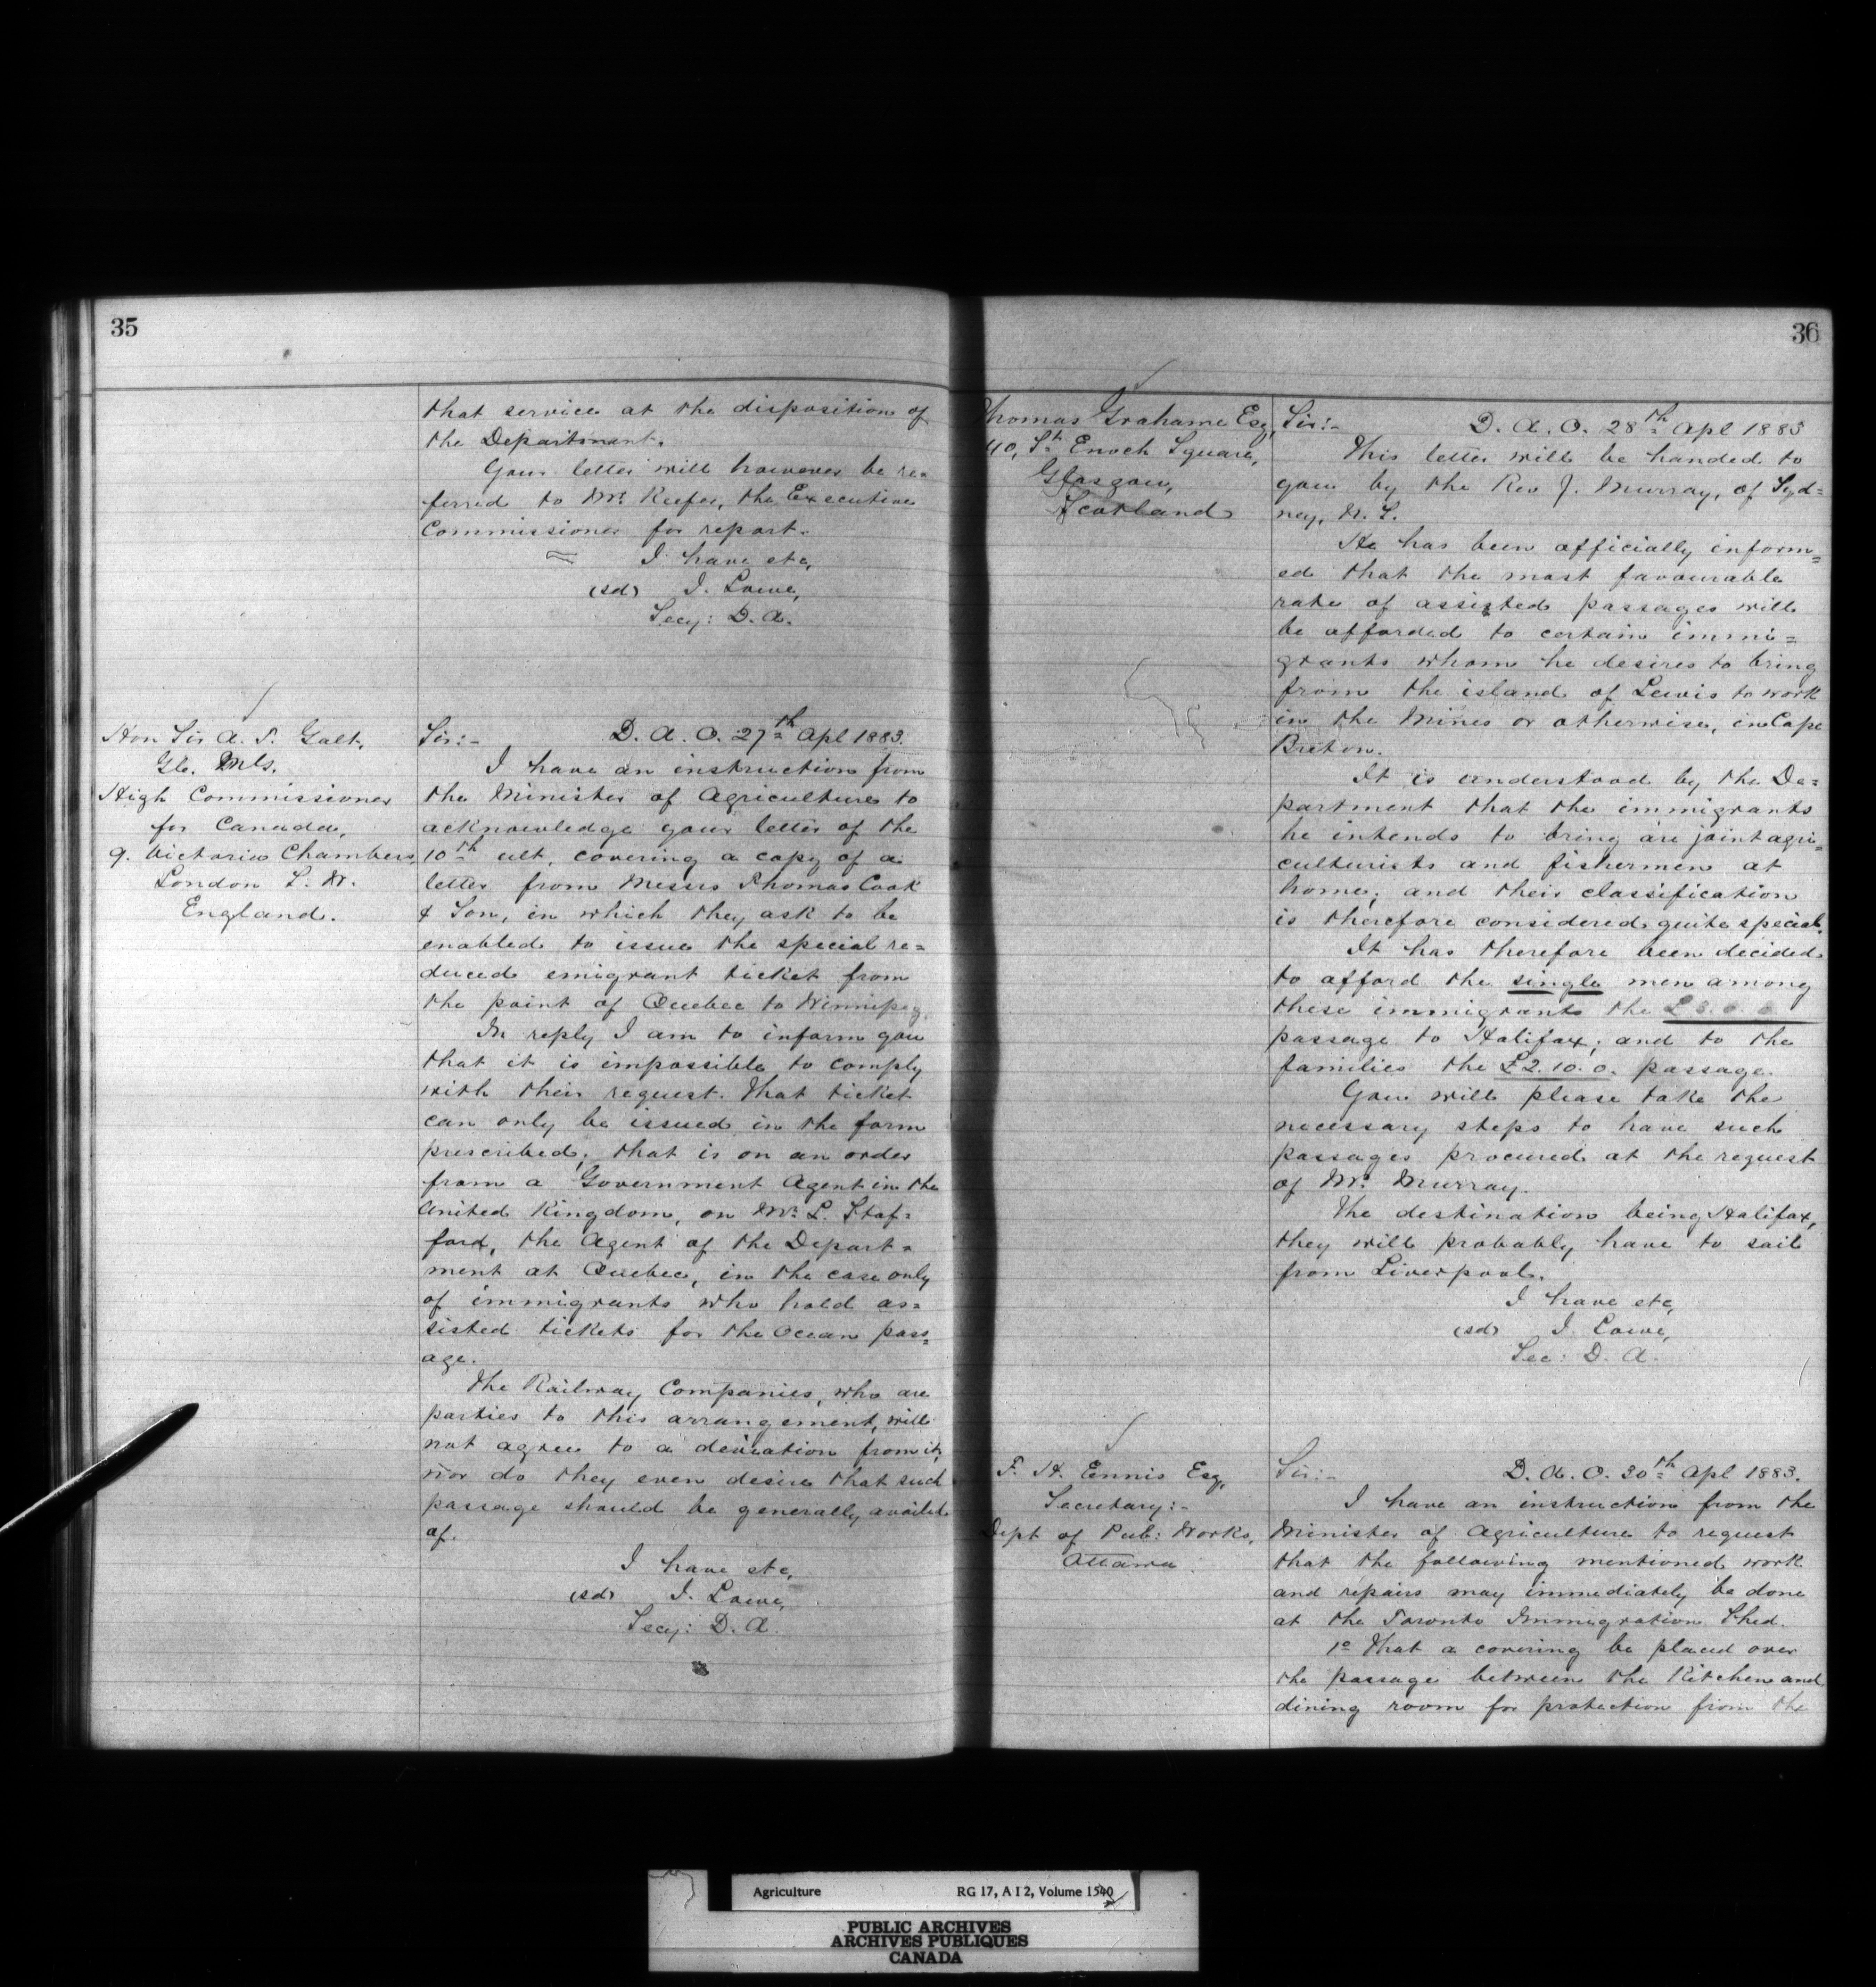 35
that service at the disposition of
the Department.
Your letter will however be re=
ferred to Mr. Keefer, the Executive
Commissioner for report.
I have etc,
(sd) J. Lowe,
Secy: D. A.
Hon Sir A. T. Galt,
High Commissioner
for Canada,
9. Victoria Chambers,
London S. W.
England.
Sir:- D. A. O. 27th Apl 1883.
I have an instruction from
the Minister of Agriculture to
acknowledge your letter of the
10th ult, covering a copy of a
letter from Messrs Thomas Cook
& Son, in which they ask to be
enabled to issue the special re=
duced emigrant ticket from
the point of Quebec to Winnipeg.
In reply I am to inform you
that it is impossible to comply
with their request. That ticket
can only be issued in the form
prescribed; that is on an order
from a Government Agent in the
United Kingdom, on Mr. L. Staf=
ford, the Agent of the Depart=
ment at Quebec, in the case only
of immigrants who hold as=
sisted tickets for the Ocean pass=
age.
The Railway Companies, who are
parties to this arrangement, will
not agree to a deviation from it,
nor do they even desire that such
passage should be generally availed
of.
I have etc,
(sd) J. Lowe,
Secy: D. A.
36
Thomas Grahame Esq,
40, St. Enoch Square,
Glasgow,
Scotland
Sir:- D. A. O. 28th Apl 1883
This letter will be handed to
you by the Rev J. Murray, of Syd=
ney, N. S.
He has been officially inform=
ed that the most favourable
rate of assisted passages will
be afforded to certain immi=
grants whom he desires to bring
from the island of Lewis to work
in the Mines or otherwise, in Cape
Breton.
It is understood by the De=
partment that the immigrants
he intends to bring are joint agri=
culturists and fishermen at
home; and their classification
is therefore considered quite special.
It has therefore been decided
to afford the single men among
these immigrants the £3. 0. 0
passage to Halifax; and to the
families the £2. 10. 0. passage.
You will please take the
necessary steps to have such
passages procured at the request
of Mr. Murray.
The destination being Halifax,
they will probably have to sail
from Liverpool.
I have etc,
(sd) J. Lowe,
Sec: D. A.
F. H. Ennis Esq,
Secretary:-
Dept of Pub: Works,
Ottawa.
Sir:- D. A. O. 30th Apl 1883.
I have an instruction from the
Minister of Agriculture to request
that the following mentioned work
and repairs may immediately be done
at the Toronto Immigration Shed.
1o That a covering be placed over
the passage between the Kitchen and
dining room for protection from the
Agriculture RG 17, A I 2, Volume 1540
PUBLIC ARCHIVES
ARCHIVES PUBLIQUES
CANADA